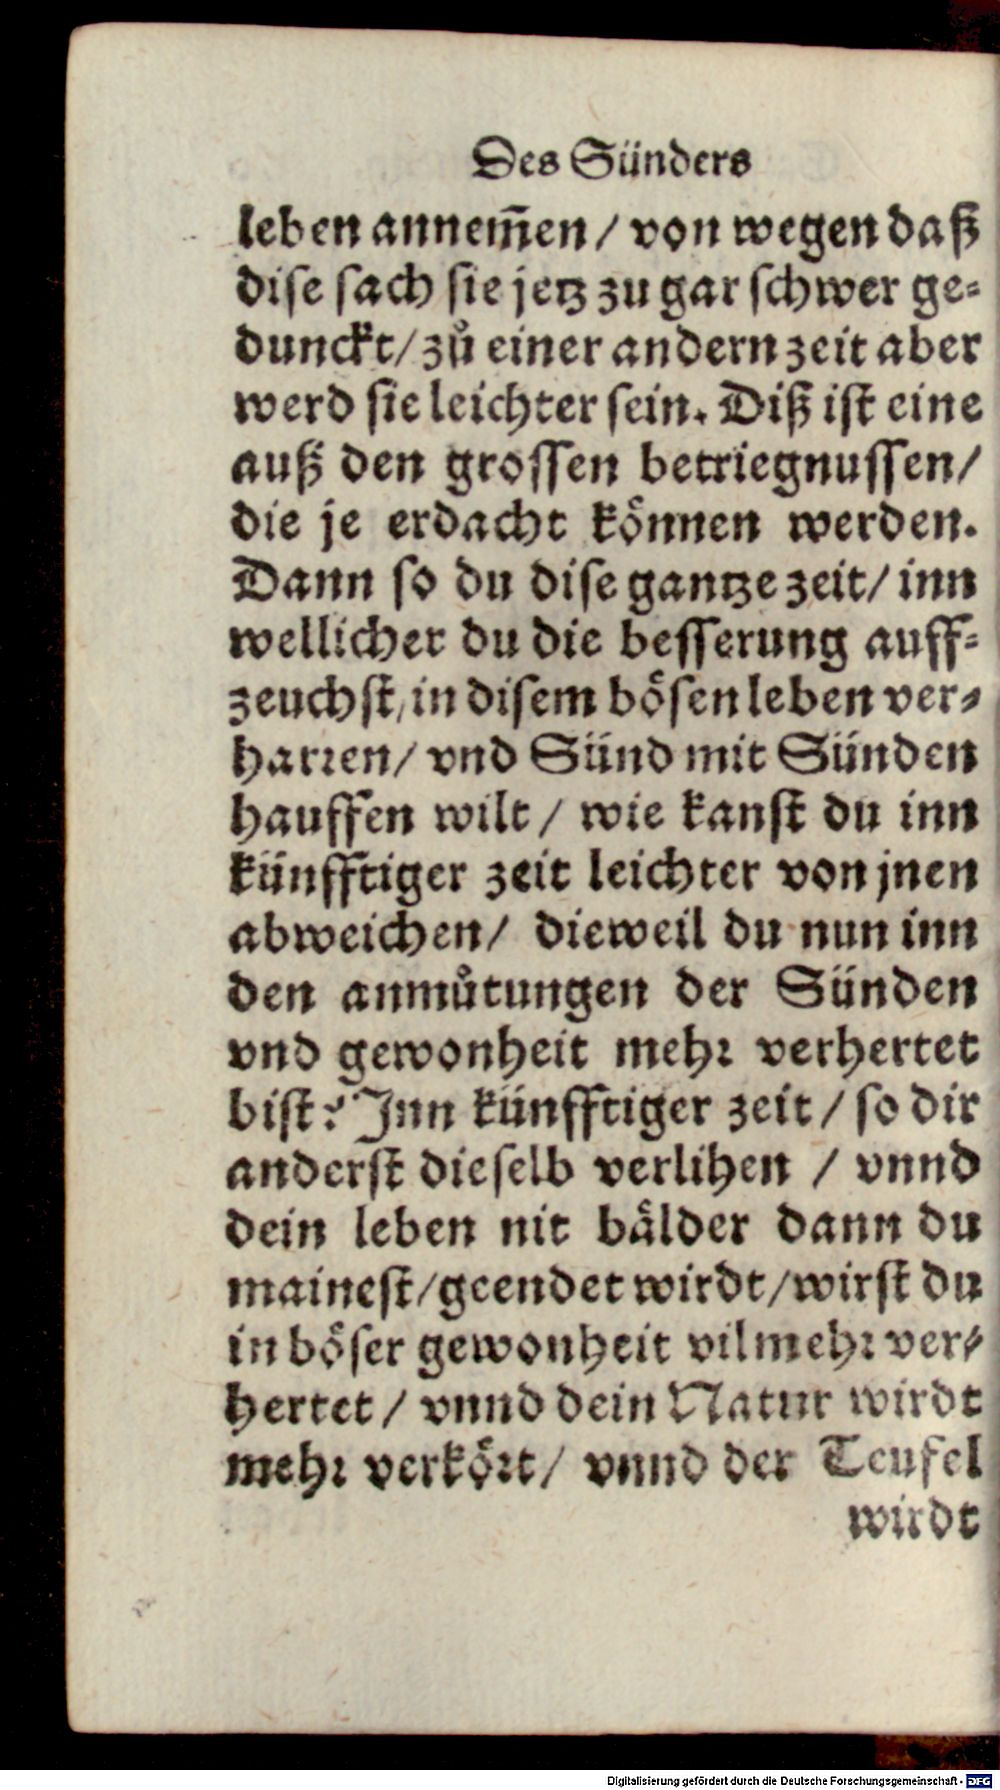 Des Sünders
leben annem̃en / von wegen daß
dise sach sie jetz zu gar schwer ge-
dunckt / zů einer andern zeit aber
werd sie leichter sein. Diß ist eine
auß den grossen betriegnussen /
die je erdacht können werden.
Dann so du dise gantze zeit / inn
wellicher du die besserung auff-
zeuchst, in disem bösen leben ver-
harren / vnd Sünd mit Sünden
hauffen wilt / wie kanst du inn
künfftiger zeit leichter von jnen
abweichen / dieweil du nun inn
den anmůtungen der Sünden
vnd gewonheit mehr verhertet
bist? Inn künfftiger zeit / so dir
anderst dieselb verlihen / vnnd
dein leben nit bälder dann du
mainest / geendet wirdt / wirst du
in böser gewonheit vil mehr ver-
hertet / vnnd dein Natur wirdt
mehr verkört / vnnd der Teufel
wirdt
Digitalisierung gefördert durch die Deutsche Forschungsgemeinschaft - DFG